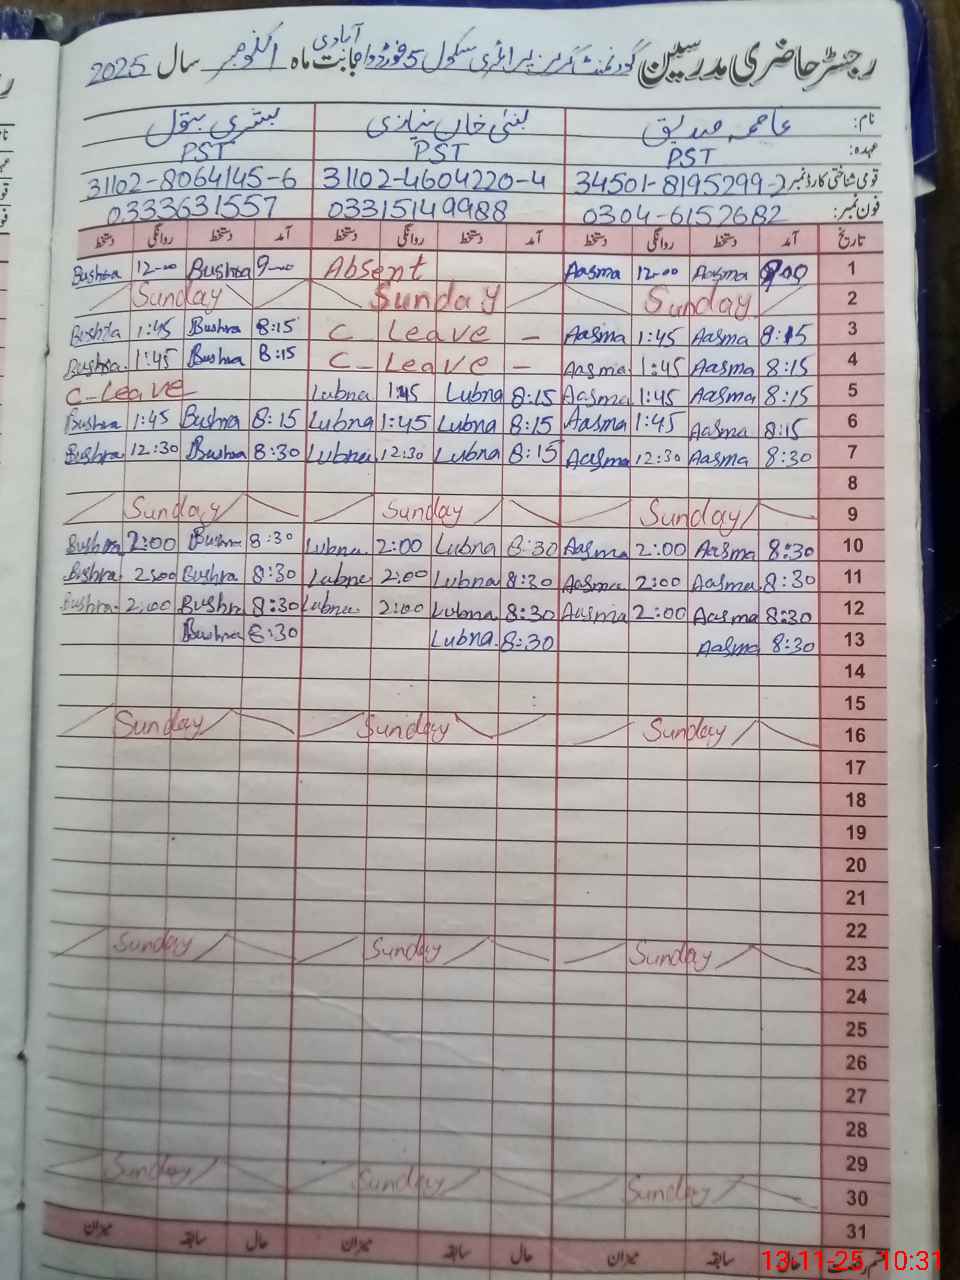 رجسٹر حاضری مدرسین گورنمنٹ گرلز پرائمری سکول 5 فورڈواہ آبادی بابت ماہ اکتوبر سال 2025
نام: عاصمہ صدیق لبنیٰ خان نیازی بشریٰ بتول
عہدہ: PST PST PST
قومی شناختی کارڈ نمبر 34501-8195299-2 31102-4604220-4 31102-8064145-6
فون نمبر: 0304-6152682 03315149988 0333631557
تاریخ آمد دستخط روانگی دستخط آمد دستخط روانگی دستخط آمد دستخط روانگی دستخط
Bushra 12-00 Bushra 9-00 Absent - Aasma 12-00 Aasma 9-00 1
Sunday Sunday Sunday 2
Bushra 1:45 Bushra 8:15 C Leave - Aasma 1:45 Aasma 8:15 3
Bushra 1:45 Bushra 8:15 C Leave - Aasma 1:45 Aasma 8:15 4
C-Leave Lubna 1:45 Lubna 8:15 Aasma 1:45 Aasma 8:15 5
Bushra 1:45 Bushra 8:15 Lubna 1:45 Lubna 8:15 Aasma 1:45 Aasma 8:15 6
Bushra 12:30 Bushra 8:30 Lubna 12:30 Lubna 8:15 Aasma 12:30 Aasma 8:30 7
8
Sunday Sunday Sunday 9
Bushra 2:00 Bushra 8:30 Lubna 2:00 Lubna 8:30 Aasma 2:00 Aasma 8:30 10
Bushra 2:00 Bushra 8:30 Lubna 2:00 Lubna 8:30 Aasma 2:00 Aasma 8:30 11
Bushra 2:00 Bushra 8:30 Lubna 2:00 Lubna 8:30 Aasma 2:00 Aasma 8:30 12
Bushra 8:30 Lubna 8:30 Aasma 8:30 13
14
15
Sunday Sunday Sunday 16
17
18
19
20
21
22
Sunday Sunday Sunday 23
24
25
26
27
28
29
Sunday Sunday Sunday 30
31
حال سابقہ میزان حال سابقہ میزان حال سابقہ میزان
13-11-25, 10:31